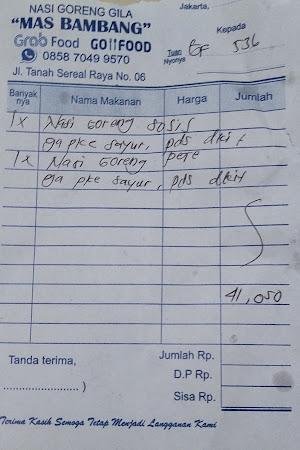 NASI GORENG GILA
"MAS BAMBANG"
Grab Food GOFOOD
0858 7049 9570
Jl. Tanah Sereal Raya No. 06
Jakarta,
Kepada
Tuan
Nyonya
GF 536
Banyak nya Nama Makanan Harga Jumlah
1x Nasi Goreng Sosis
ga pke sayur, pds dkit
1x Nasi Goreng pete
ga pke sayur, pds dkit
41,050
Tanda terima,
Jumlah Rp.
D.P Rp.
Sisa Rp.
........................ )
Terima Kasih Semoga Tetap Menjadi Langganan Kami